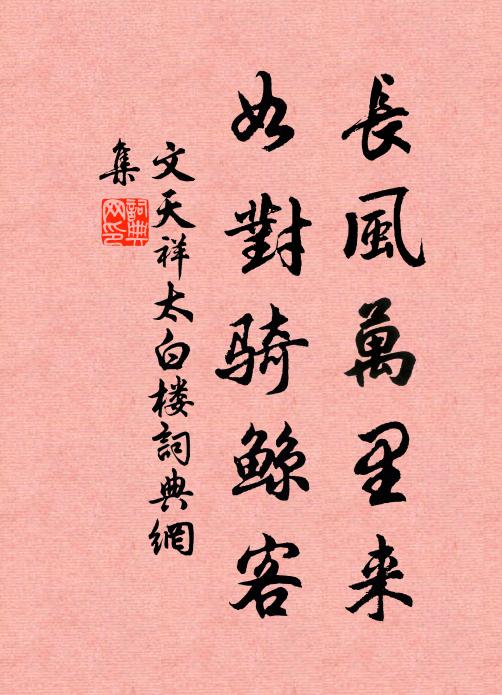 長風萬里来
如對骑鲸客
文天祥太白楼詞典網
集
詞典
网印